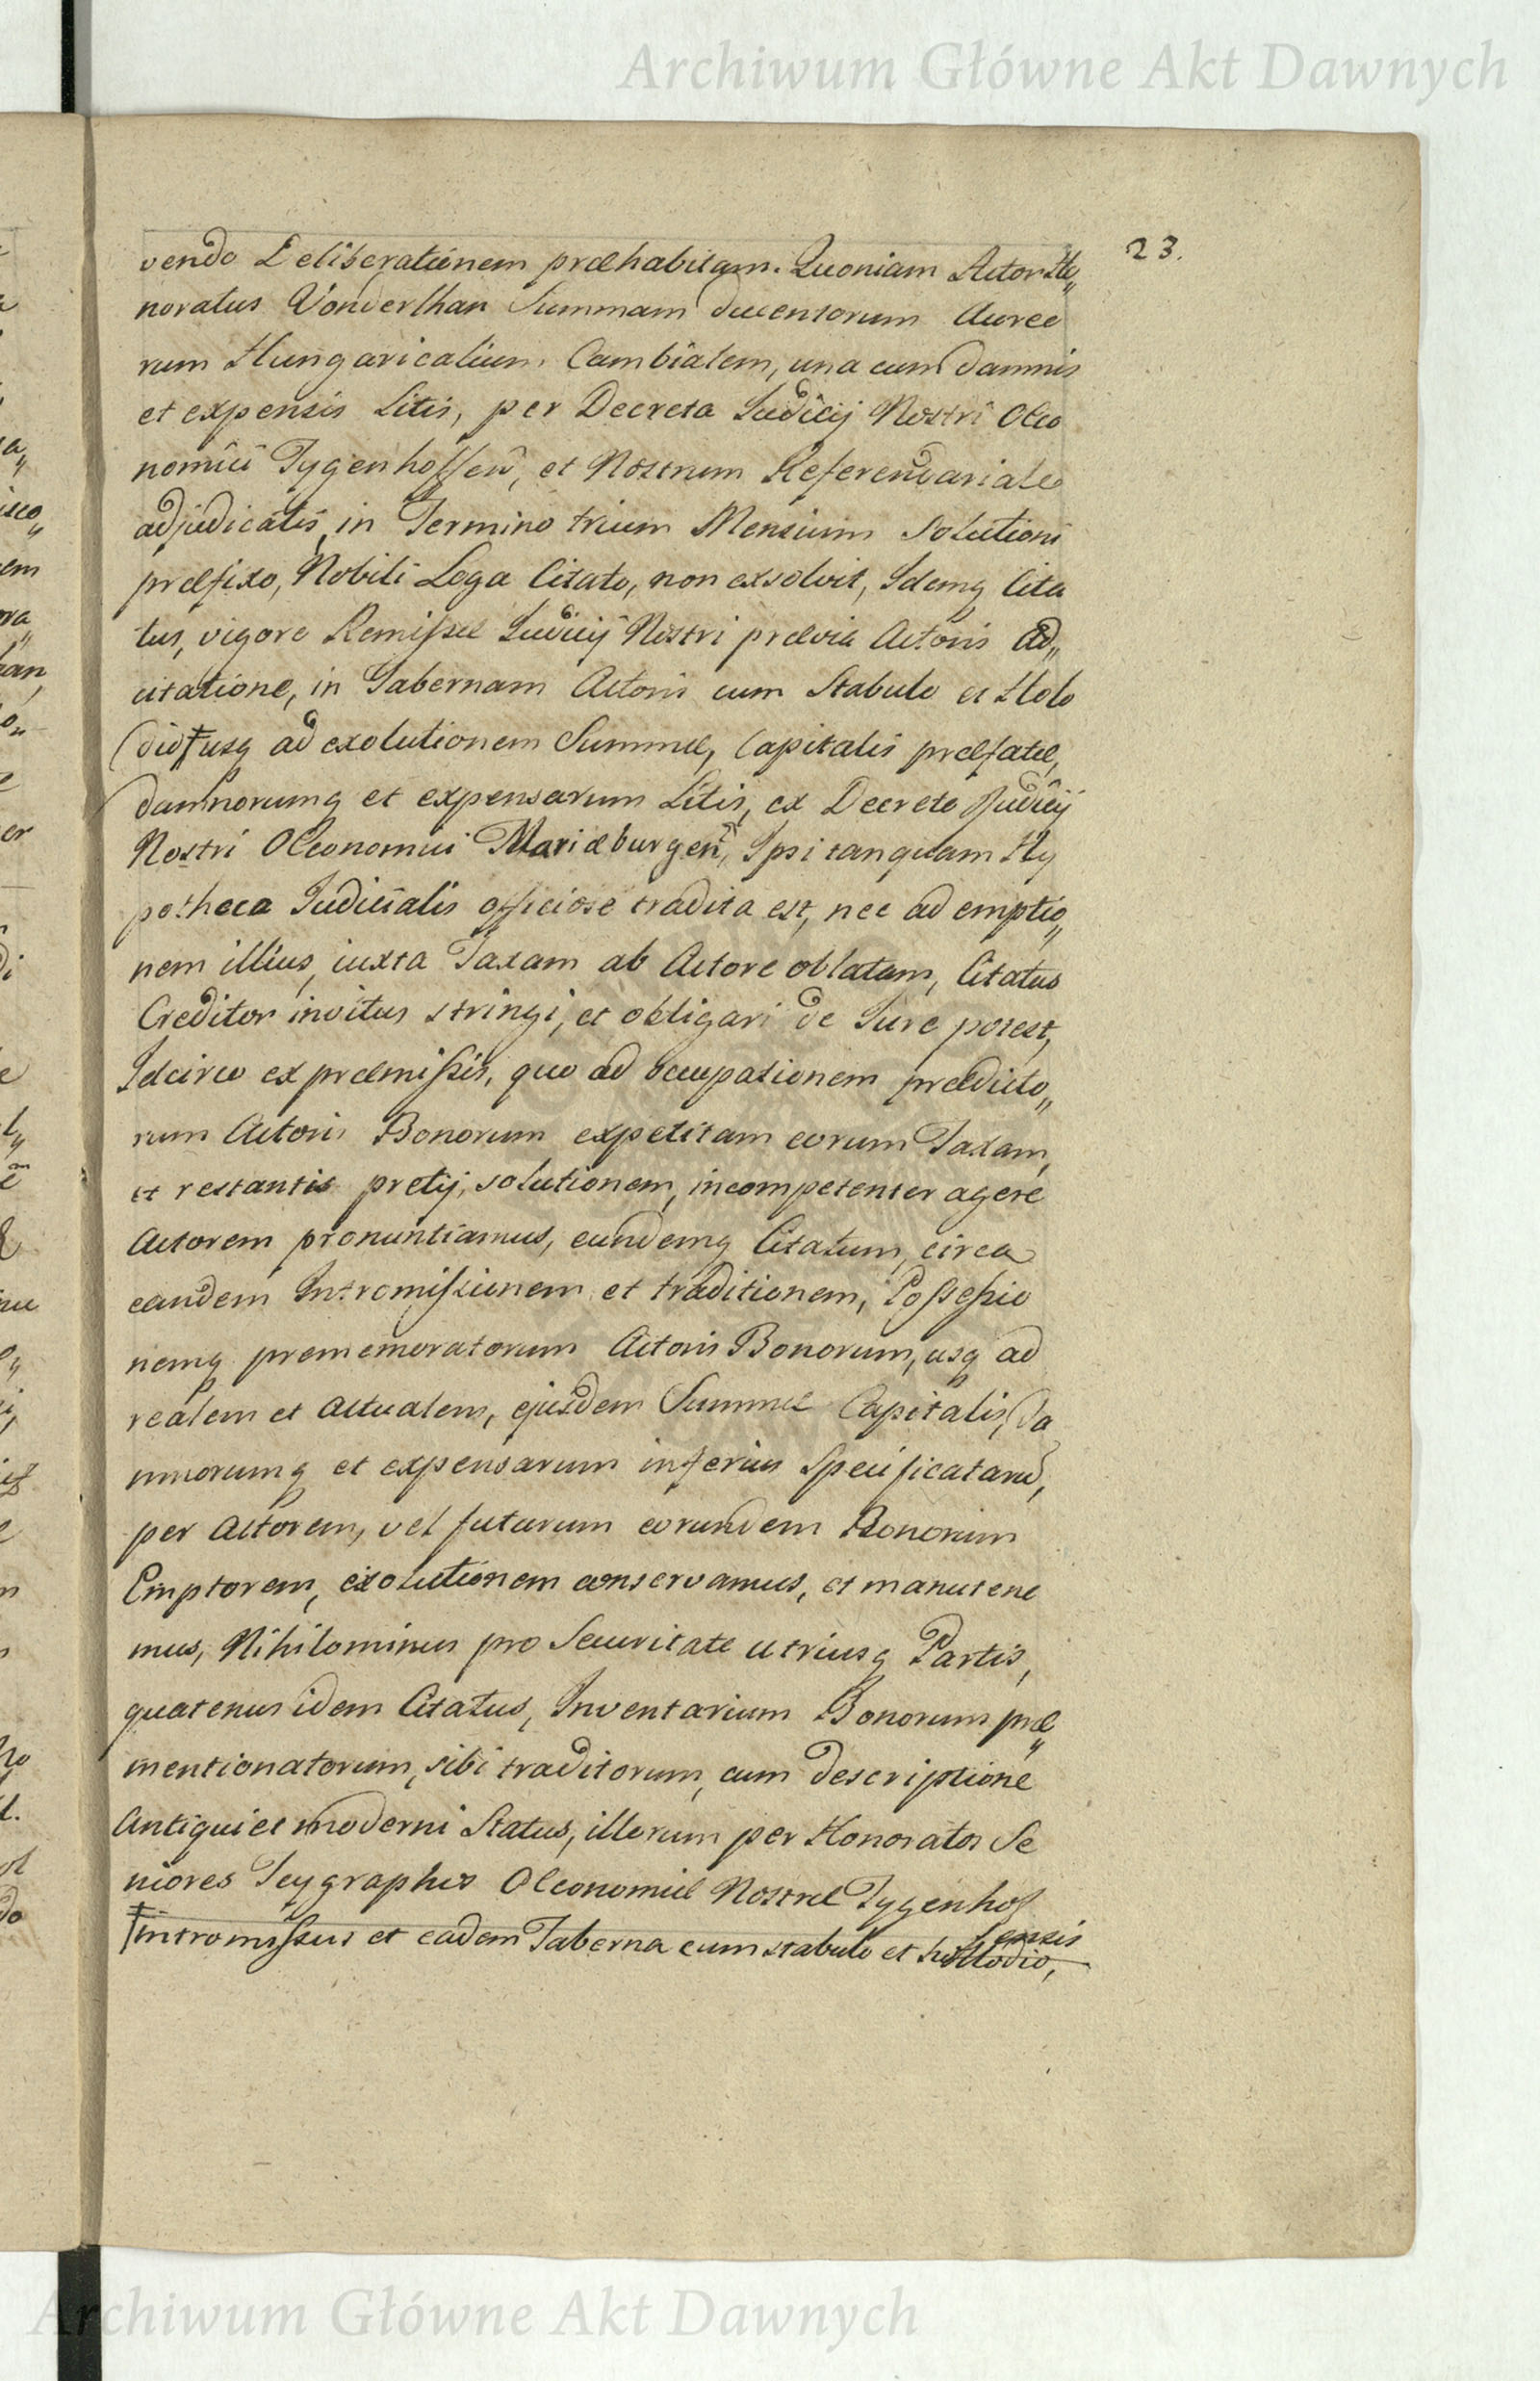 Archiwum Główne Akt Dawnych
23.
vendo Deliberationem præhabitam. Quoniam Actor Ho„
noratus Vonderthan Summam ducentorum Aureo
rum Hungaricalium Cambialem, una cum damnis
et expensis Litis, per Decreta Judicij Nostri Oeco
nomici Tygenhoffen, et Nostrum Referendariale
adjudicatis, in Termino trium Mensium Solutioni
præfixo, Nobili Loga Citato, non exsolvit, Idemq Cita
tus, vigore Remissæ Judicij Nostri prævia Actoris Ad„
citatione, in Tabernam Actoris cum Stabulo et Holo
dio † usq ad exolutionem Summæ, Capitalis præfatæ,
damnorumq et expensarum Litis, ex Decreto Judicij
Nostri Oeconomici Mariæburgen, Ipsi tanquam Hy
potheca Judicialis officiose tradita est, nec ad emptio„
nem illius, iuxta Taxam ab Actore oblatam, Citatus
Creditor invitus stringi, et obligari de Jure potest,
Idcirco ex præmissis, quo ad occupationem prædicto„
rum Actoris Bonorum expetitam eorum Taxam,
et restantis pretij, solutionem, incompetenter agere
Actorem pronuntiamus, eundemq Citatum, circa
eandem Intromissionem et traditionem, Possessio
nemq prememoratorum Actoris Bonorum, usq ad
realem et actualem, ejusdem Summæ Capitalis, Da
mnorumq et expensarum inferius Specificatarū,
per Actorem, vel futurum eorundem Bonorum
Emptorem, exolutionem conservamus, et manutene
mus, Nihilominus pro Securitate utriusq Partis,
quatenus idem Citatus, Inventarium Bonorum præ„
mentionatorum, sibi traditorum, cum descriptione
Antiqui et moderni Status, illorum per Honoratos Se
niores Teygraphios Oeconomiæ Nostræ Tygenhof
fensis
† intromissus et eadem Taberna cum stabulo et Hollodio,
Archiwum Główne Akt Dawnych